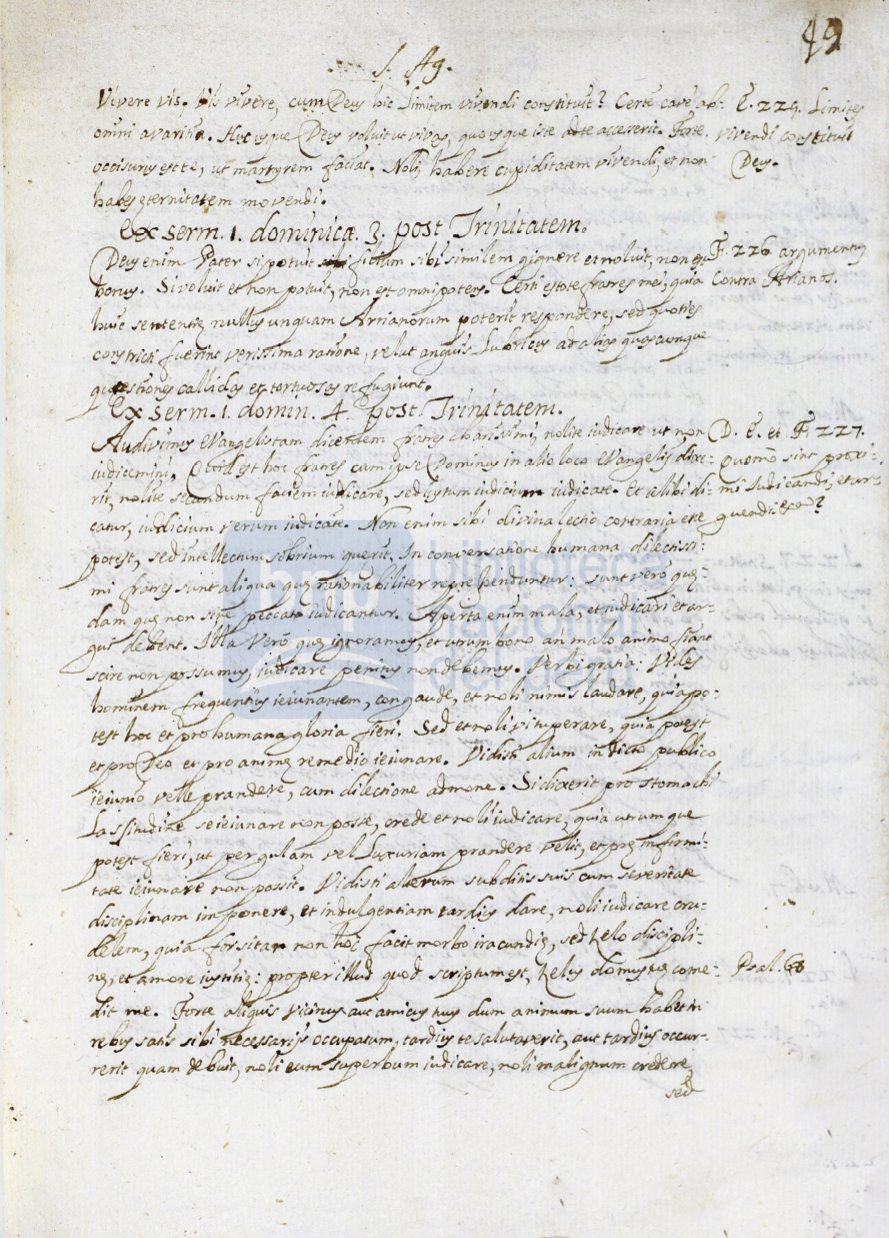 49
S. Ag.
Vivere vis. Vis vivere, cum Deus hic limitem vivendi constituit? Certe cave ab
omni avaritia. Huc usque Deus voluit ut vives, quousque iste ad te accesserit. Forte
occisurus est te, ut martyrem faciat. Noli habere cupiditatem vivendi, et non
habes eternitatem movendi.
E. 225. Limites
vivendi constituit
Deus.
Ex serm. 1. dominica. 3. post Trinitatem.
Deus enim Pater si potuit filium sibi similem gignere et noluit, non est
bonus. Si voluit et non potuit, non est omnipotens. Certi estote fratres mei, quia
huic sententię nullus unquam Arrianorum poterit respondere, sed quoties
constricti fuerint verissima ratione, velut anguis lubricus ad alias quascunque
questiones callidas et tortuoses refugiunt.
F. 226. argumentum
contra Arianos.
Ex serm. 1. domin. 4. post Trinitatem.
Audivimus Evangelistam dicentem fratres charissimi, nolite iudicare ut non
iudicemini. Quid est hoc fratres cum ipse Dominus in alio loco Evangelij dixe-
rit, nolite secundum faciem iudicare, sed iustum iudicium iudicate. Et alibi di-
catur, iudicium verum iudicate. Non enim sibi divina lectio contraria esse
potest, sed intellectum sobrium querit. In conversatione humana dilectissi-
mi fratres sunt aliqua quę rationabiliter reprehenduntur: sunt verò quę-
dam quę non sine peccato iudicantur. Aperta enim mala, et iudicari et ar-
gui debent. Illa verò quę ignoramus, et utrum bono an malo animo fiant
scire non possumus, iudicare penitus non debemus. Verbi gratia: Vides
hominem frequentius ieiunantem, congaude, et noli nimis laudare, quia po-
test hoc et pro humana gloria fieri. Sed et noli vituperare, quia potest
et pro Deo et pro animę remedio ieiunare. Vidisti alium indicto publico
ieiunio velle prandere, cum dilectione admone. Si dixerit pro stomachi
lassitudine se ieiunare non posse, crede et noli iudicare, quia utrumque
potest fieri, ut per gulam vel luxuriam prandere velit, et prę infirmi-
tate ieiunare non possit. Vidisti alterum subditis suis cum severitate
disciplinam imponere, et indulgentiam tardius dare, noli iudicare cru-
delem, quia forsitan non hoc facit morbo iracundię, sed zelo discipli-
nę, et amore iustitię: propter illud quod scriptum est, zelus domus tuę come-
dit me. Forte aliquis vicinus aut amicus tuus dum animum suum habet in
rebus satis sibi necessarijs occupatum, tardius te salutaverit, aut tardius occur-
rerit quam debuit, noli eum superbum iudicare, noli malignum credere
sed
D. E. et F. 227.
quomo sint proxi-
mi iudicandi, et ar-
guendi
Psal. 68